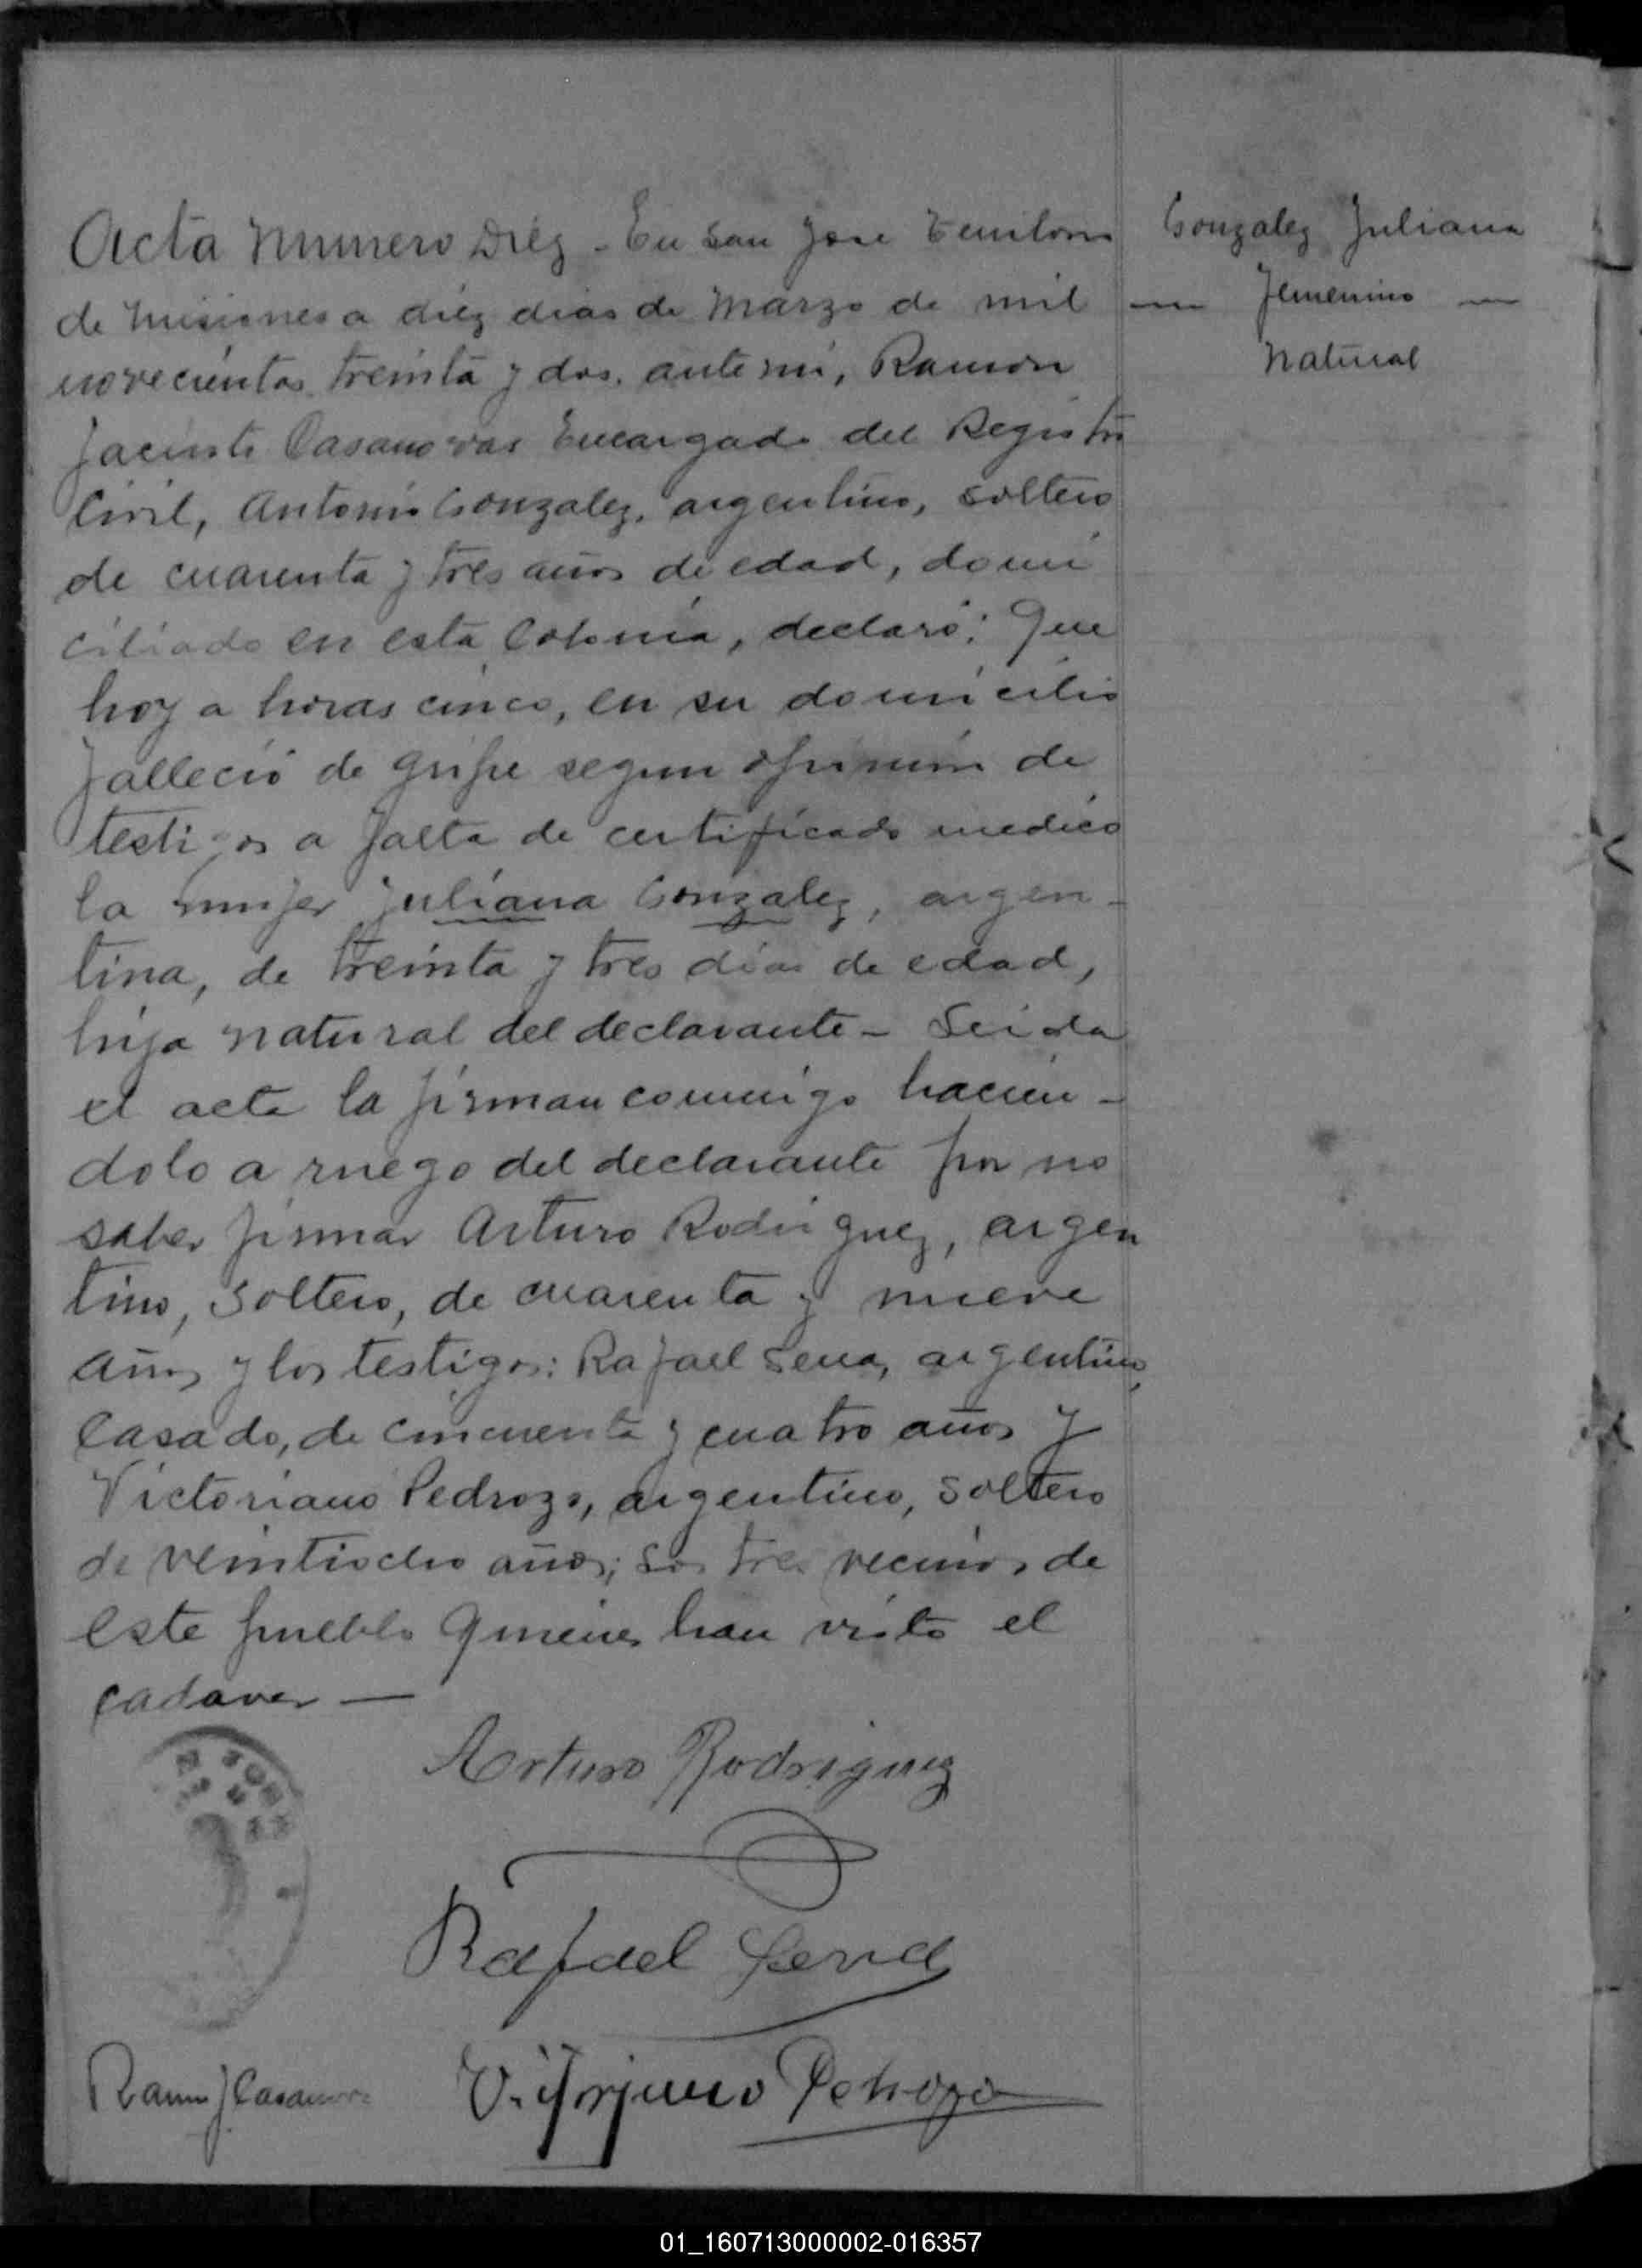 Acta Numero Diez - En San Jose Territorio
de Misiones a diez dias de Marzo de mil
novecientos treinta y dos, ante mi, Ramon
Jacinto Casanovas Encargado del Registro
Civil, Antonio Gonzalez, argentino, soltero
de cuarenta y tres años de edad, domi
ciliado en esta Colonia, declaró: Que
hoy a horas cinco, en su domicilio
falleció de gripe segun opinion de
testigos a falta de certificado medico
la mujer Juliana Gonzalez, argen-
tina, de treinta y tres dias de edad,
hija natural del declarante - Leida
el acta la firman conmigo hacien-
dolo a ruego del declarante por no
saber firmar Arturo Rodriguez, argen
tino, soltero, de cuarenta y nueve
años y los testigos: Rafael Sena, argentino
Casado, de cincuenta y cuatro años y
Victoriano Pedrozo, argentino, soltero
de veintiocho años; los tres vecinos de
este pueblo quienes han visto el
cadaver —
Gonzalez Juliana
— Femenino —
Natural
Arturo Rodriguez
Rafael Sena
Ramon J Casanovas
01_160713000002-016357